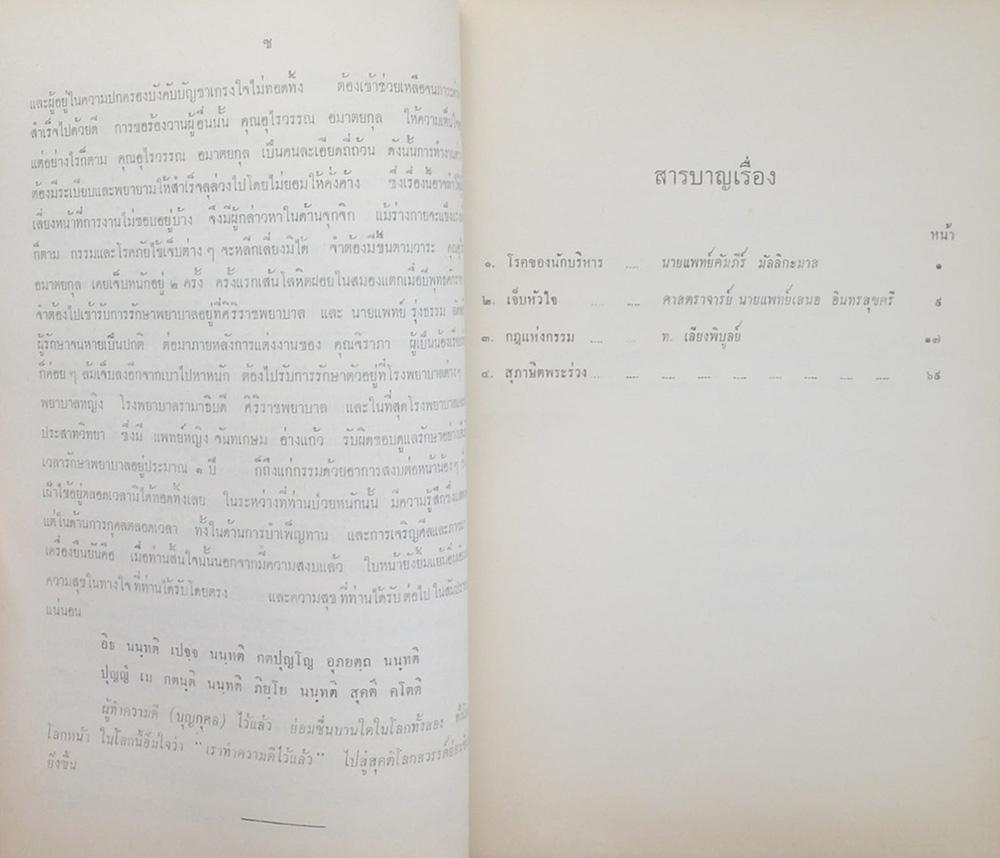 ซ
และผู้อยู่ในความปกครองบังคับบัญชาเกรงใจไม่ทอดทิ้ง ต้องเข้าช่วยเหลือจนภาระ
สำเร็จไปด้วยดี การขอร้องวานผู้อื่นนั้น คุณอุไรวรรณ อมาตยกุล ให้ความ
แต่อย่างไรก็ตาม คุณอุไรวรรณ อมาตยกุล เป็นคนละเอียดถี่ถ้วน ดังนั้นการทำงาน
ต้องมีระเบียบและพยายามให้สำเร็จลุล่วงไปโดยไม่ยอมให้คั่งค้าง ซึ่งเรื่องนี้อาจ
เสี่ยงหน้าที่การงานไม่ชอบอยู่บ้าง จึงมีผู้กล่าวหาในด้านจุกจิก แม้ร่างกายจะแข็งแรง
ก็ตาม กรรมและโรคภัยไข้เจ็บต่าง ๆ จะหลีกเลี่ยงมิได้ จำต้องมีขึ้นตามวาระ
อมาตยกุล เคยเจ็บหนักอยู่ ๒ ครั้ง ครั้งแรกเส้นโลหิตฝอยในสมองแตกเมื่อปีพุทธศักราช
จำต้องไปเข้ารับการรักษาพยาบาลอยู่ที่ศิริราชพยาบาล และ นายแพทย์ รุ่งธรรม
ผู้รักษาจนหายเป็นปกติ ต่อมาภายหลังการแต่งงานของ คุณจิราภา ผู้เป็นน้อง
ก็ค่อย ๆ ล้มเจ็บลงอีกจากเบาไปหาหนัก ต้องไปรับการรักษาตัวอยู่ที่โรงพยาบาลต่าง ๆ
พยาบาลหญิง โรงพยาบาลรามาธิบดี ศิริราชพยาบาล และในที่สุดโรงพยาบาล
ประสาทวิทยา ซึ่งมี แพทย์หญิง จันทเกษม อ่างแก้ว รับผิดชอบดูแลรักษาอย่าง
เวลารักษาพยาบาลอยู่ประมาณ ๑ ปี ก็ถึงแก่กรรมด้วยอาการสงบต่อหน้าน้อง ๆ
เฝ้าไข้อยู่ตลอดเวลามิได้ทอดทิ้งเลย ในระหว่างที่ท่านป่วยหนักนั้น มีความรู้สึก
แต่ในด้านการกุศลตลอดเวลา ทั้งในด้านการบำเพ็ญทาน และการเจริญศีลและภาวนา
เครื่องยืนยันคือ เมื่อท่านสิ้นใจนั้นนอกจากมีความสงบแล้ว ใบหน้ายังยิ้มแย้ม
ความสุขในทางใจ ที่ท่านได้รับโดยตรง และความสุข ที่ท่านได้รับ ต่อไป ในสัมปราย
แน่นอน
อิธ นนฺทติ เปจฺจ นนฺทติ กตปุญฺโญ อุภยตฺถ นนฺทติ
ปุญฺญํ เม กตนฺติ นนฺทติ ภิยฺโย นนฺทติ สุคตึ คโตติ
ผู้ทำความดี (บุญกุศล) ไว้แล้ว ย่อมชื่นบานใดในโลกทั้งสอง
โลกหน้า ในโลกนี้อิ่มใจว่า "เราทำความดีไว้แล้ว" ไปสู่สุคติโลกสวรรค์
ยิ่งขึ้น
สารบาญเรื่อง
หน้า
๑. โรคของนักบริหาร .... นายแพทย์คัมภีร์ มัลลิกะมาล ๑
๒. เจ็บหัวใจ .... .... ศาสตราจารย์ นายแพทย์เสนอ อินทรสุขศรี ๕
๓. กฎแห่งกรรม .... .... ท. เลียงพิบูลย์ ๑๗
๔. สุภาษิตพระร่วง .... .... .... .... .... .... .... .... ๖๕